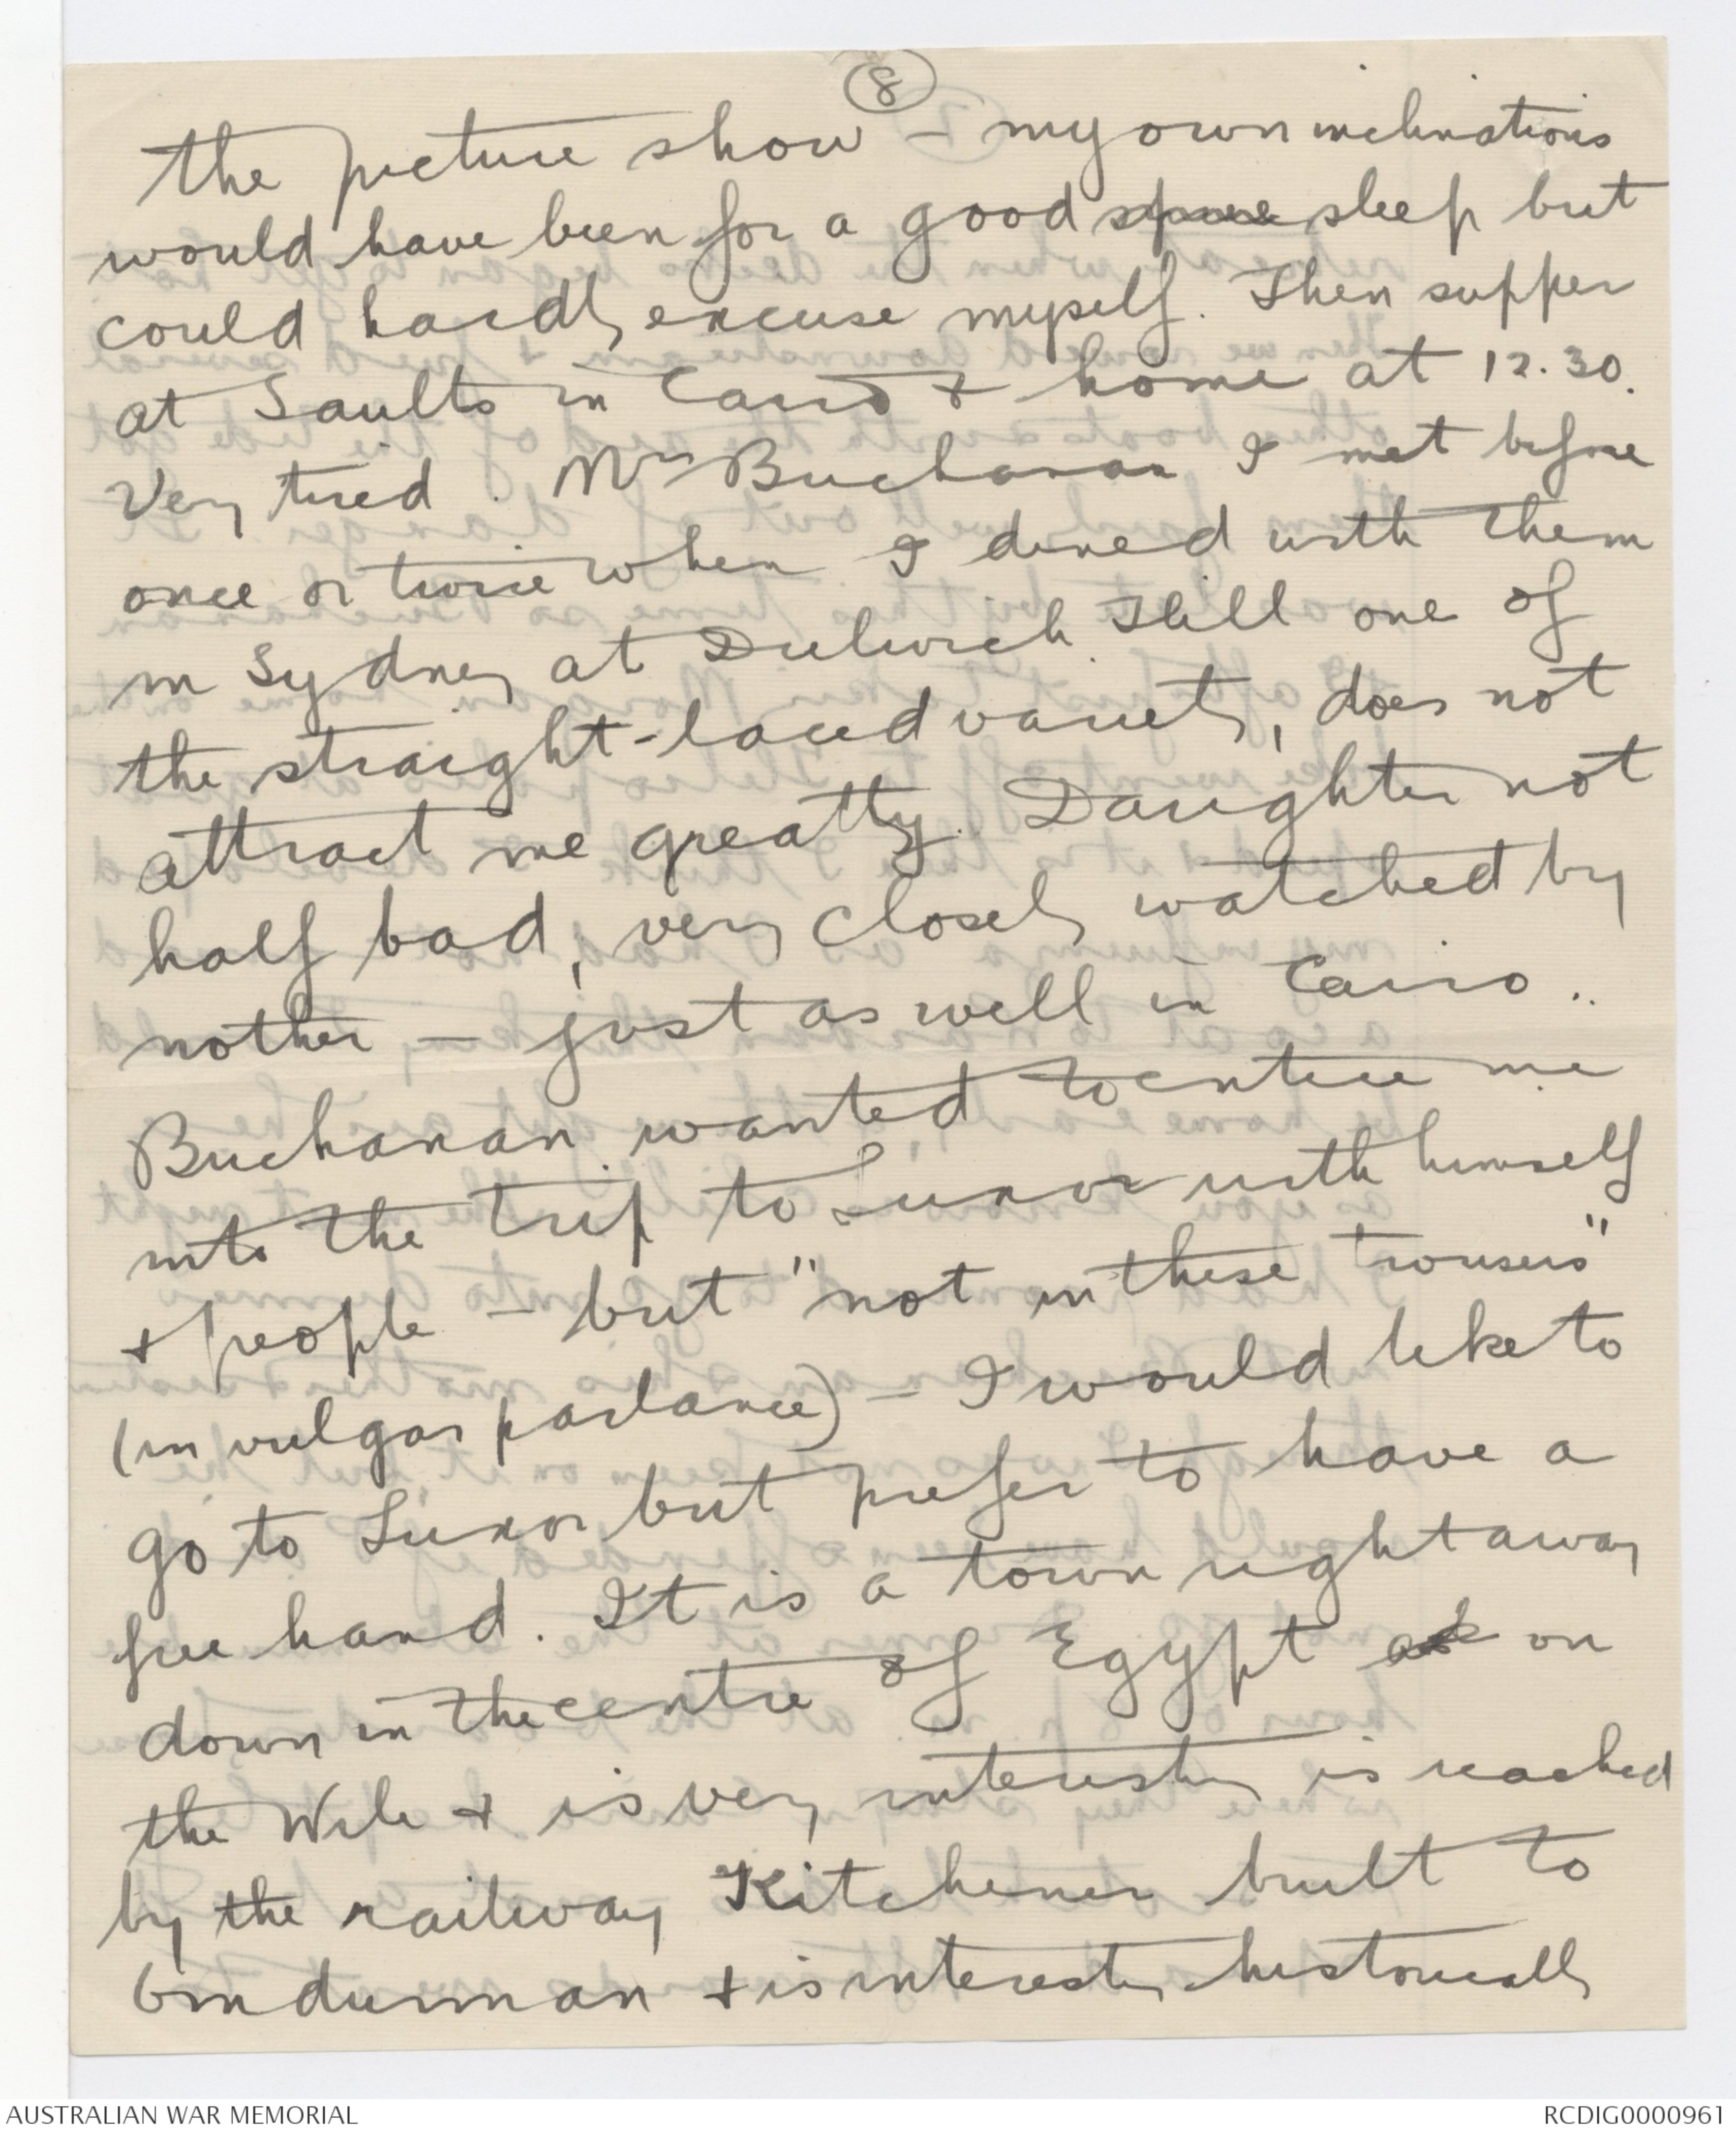 8
the picture show - my own inclinations
would have been for a good sleep but
could hardly excuse myself. Then supper
at Saults in Cairo & home at 12.30.
Very tired. Mrs Buchanan I met before
once or twice when I dined with them
in Sydney at Dulwich Hill one of
the straight-laced variety, does not
attract me greatly. Daughter not
half bad, very closely watched by
mother - just as well in Cairo..
Buchanan wanted to entice me
into the trip to Luxor with himself
& people - but "not in these trousers"
(in vulgar parlance) - I would like to
go to Luxor but prefer to have a
free hand. It is a town right away
down in the centre of Egypt on
the Nile & is very interesting is reached
by the railway Kitchener built to
Omdurman & is interesting historically
AUSTRALIAN WAR MEMORIAL
RCDIG0000961